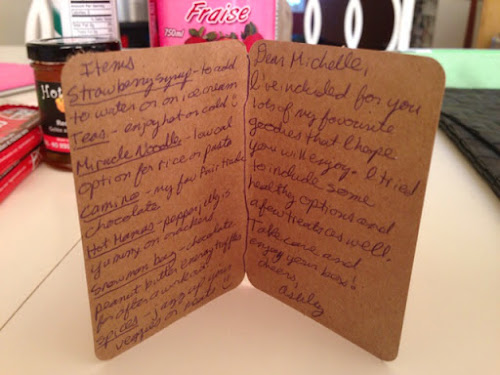 Fraise
750ml
Hot
Items
Strawberry syrup - to add
to water or on ice cream
Teas - enjoy hot or cold!
Miracle Noodle - low cal
option for rice or pasta
Camino - my fav Fair trade
chocolate
Hot Mamas - pepper jelly is
yummy on crackers
Snowman bag - chocolate
peanut butter energy truffles
for after a workout!
Spices - jazz up your
veggies or meats
Dear Michelle,
I've included for you
lots of my favourite
goodies that I hope
you will enjoy. I tried
to include some
healthy options and
a few treats as well.
Take care and
enjoy your box!
Cheers,
Ashley